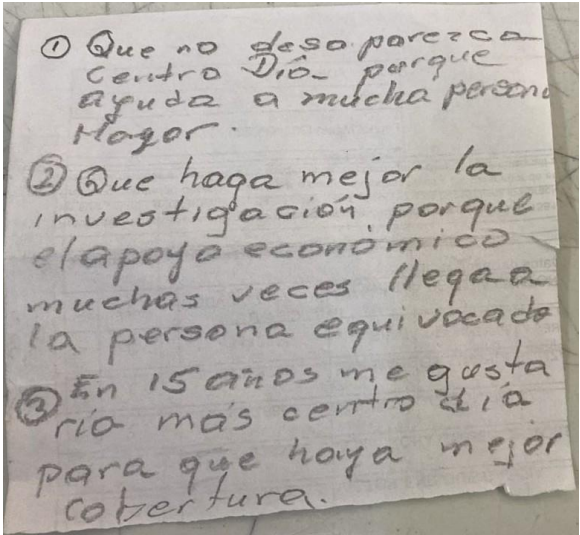 ① Que no desaparezca
Centro Día porque
ayuda a mucha persona
Mayor.
② Que haga mejor la
investigación, porque
el apoyo económico
muchas veces llega a
la persona equivocada
③ En 15 años me gusta
ría más centro día
para que haya mejor
cobertura.